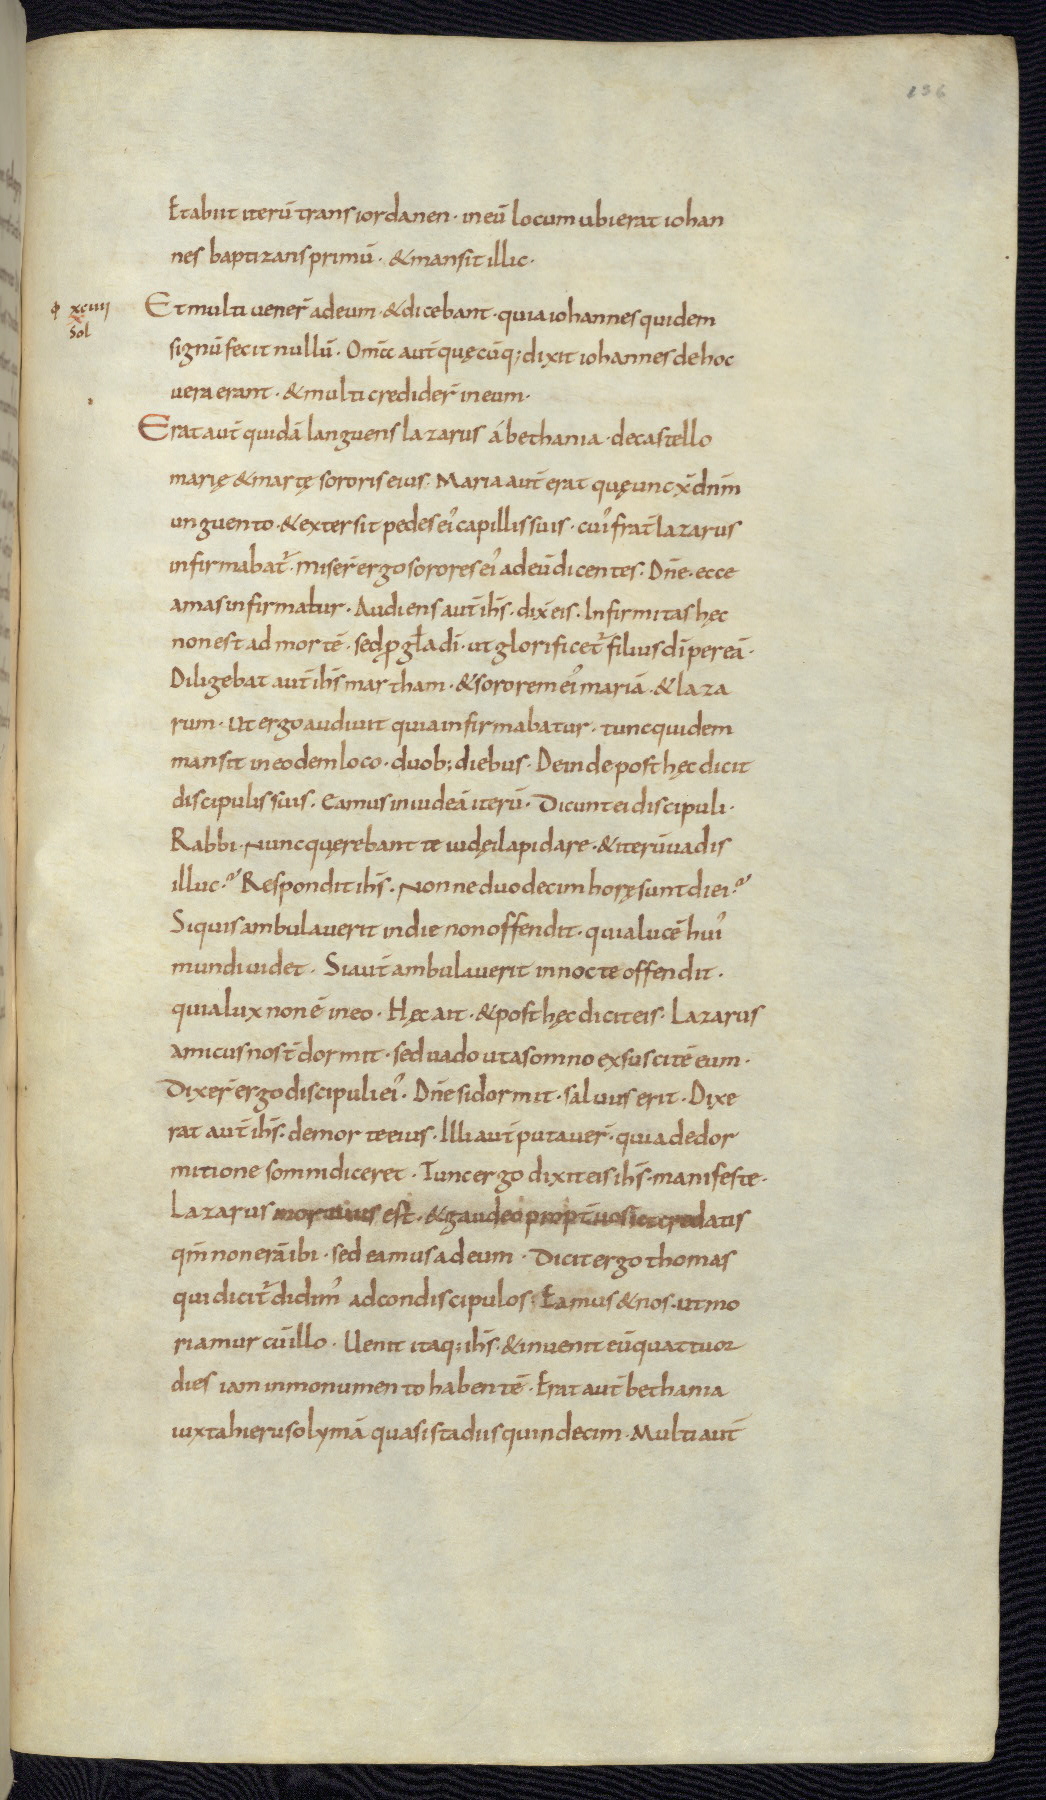 136
Et abiit iterū trans iordanen · in eū locum ubi erat iohan
nes baptizans primū · & mansit illic ·
xcviiii
Sol
Et multi vener̄ ad eum · & dicebant · quia iohannes quidem
signū fecit nullū · Om̄a aut̄ quęcūq; dixit iohannes de hoc
vera erant · & multi credider̄ in eum ·
Erat aut̄ quidā languens lazarus á bethania · de castello
marię & martę sororis eius · Maria aut̄ erat quę unc̄x dn̄m
unguento · & extersit pedes ei᾽ capillis suis · cui᾽ frat̄ lazarus
infirmabat᾽ · miser̄ ergo sorores ei᾽ ad eū dicentes · Dn̄e · ecce
amas infirmatur · Audiens aut̄ ihs̄ · dix̄ eis · Infirmitas hęc
non est ad mortē · sed ꝓ gl̄a dī · ut glorificet᾽ filius dī per eā ·
Diligebat aut̄ ihs̄ martham · & sororem ei᾽ mariā · & laza
rum · Ut ergo audivit quia infirmabatur · tunc quidem
mansit in eodem loco · duob; diebus · Deinde post hęc dicit
discipulis suis · Eamus in iudeā iterū · Dicunt ei discipuli ·
Rabbi · Nunc quęrebant te iudęi lapidare · & iterū vadis
illuc? Respondit ihs̄ · Nonne duodecim horę sunt diei?
Si quis ambulaverit in die non offendit · quia lucē hui᾽
mundi videt · Si aut̄ ambulaverit in nocte offendit ·
quia lux non ē in eo · Hęc ait · & post hęc dicit eis · Lazarus
amicus nost̄ dormit · sed vado ut a somno exsuscitē eum ·
Dixer̄ ergo discipuli ei᾽ · Dn̄e si dormit · salvus erit · Dixe
rat aut̄ ihs̄ · de morte eius · Illi aut̄ putaver̄ · quia de dor
mitione somni diceret · Tunc ergo dixit eis ihs̄ · manifeste ·
Lazarus mortuus est · & gaudeo propt̄ vos ut credatis
qm̄ non erā ibi · sed eamus ad eum · Dicit ergo thomas
qui dicit᾽ didim᾽ ad condiscipulos · Eamus & nos · ut mo
riamur cū illo · Uenit itaq; ihs̄ · & invenit eū quattuor
dies iam in monumento habentē · Erat aut̄ bethania
iuxta hierusolymā quasi stadiis quindecim · Multi aut̄